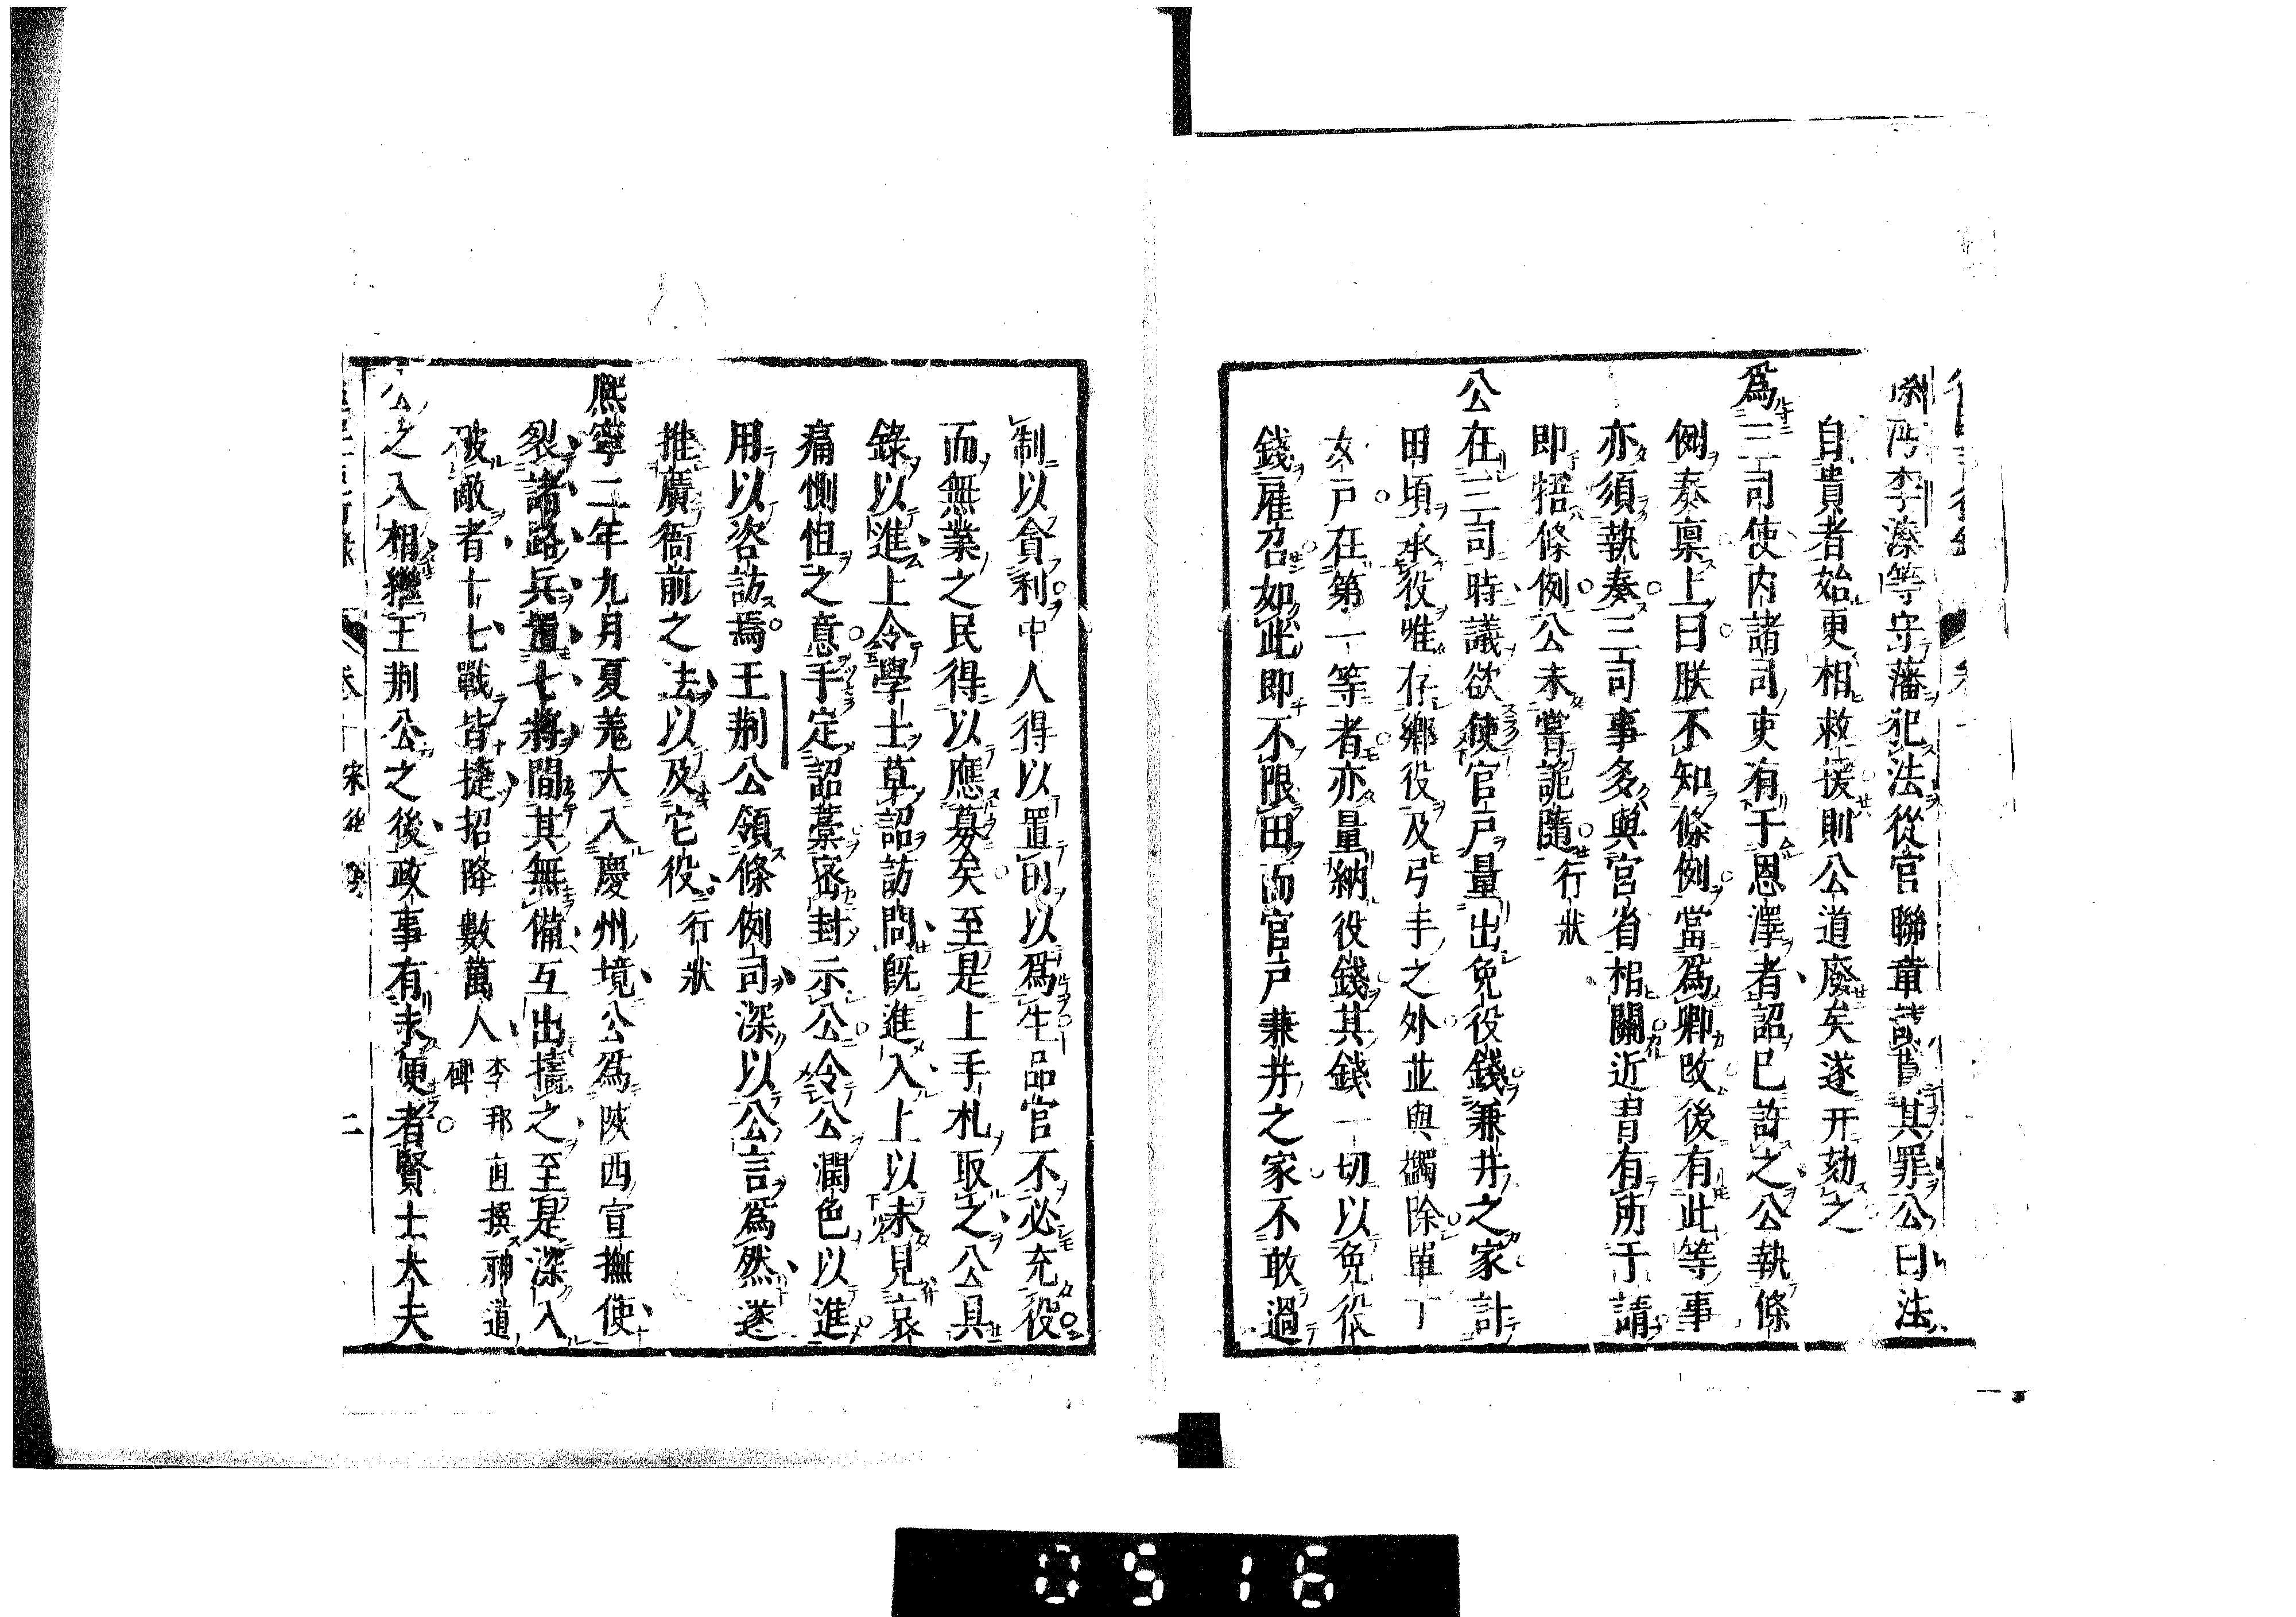 孫沔李溱等守藩犯法從官聯章請貰其罪公曰法
自貴者始更相救援則公道廢矣遂幷劾之
爲三司使内諸司吏有干恩澤者詔已許之公執條
例奏稟上曰朕不知條例當爲卿改後有此等事
亦須執奏三司事多與宮省相關近習有所干請
即牾條例公未嘗詭隨行狀
公在三司時議欲使官戶量出免役錢兼并之家計
田頃承役唯存鄉役及弓手之外並與蠲除單丁
女戶在第一等者亦量納役錢其錢一切以免役
錢雇召如此即不限田而官戶兼并之家不敢過
制以貪利中人得以置田以爲生品官不必充役
而無業之民得以應募矣至是上手札取之公具
錄以進上令學士草詔訪問旣進入上以未見哀
痛惻怛之意手定詔藁密封示公令公潤色以進
用以咨訪焉王荆公領條例司深以公言爲然遂
推廣衙前之法以及它役行狀
熈寧二年九月夏羌大入慶州境公爲陝西宣撫使
裂諸路兵置七將間其無備互出擣之至是深入
破敵者十七戰皆捷招降數萬人李邦直撰神道
碑
公之入相繼王荆公之後政事有未便者賢士大夫
二
0516